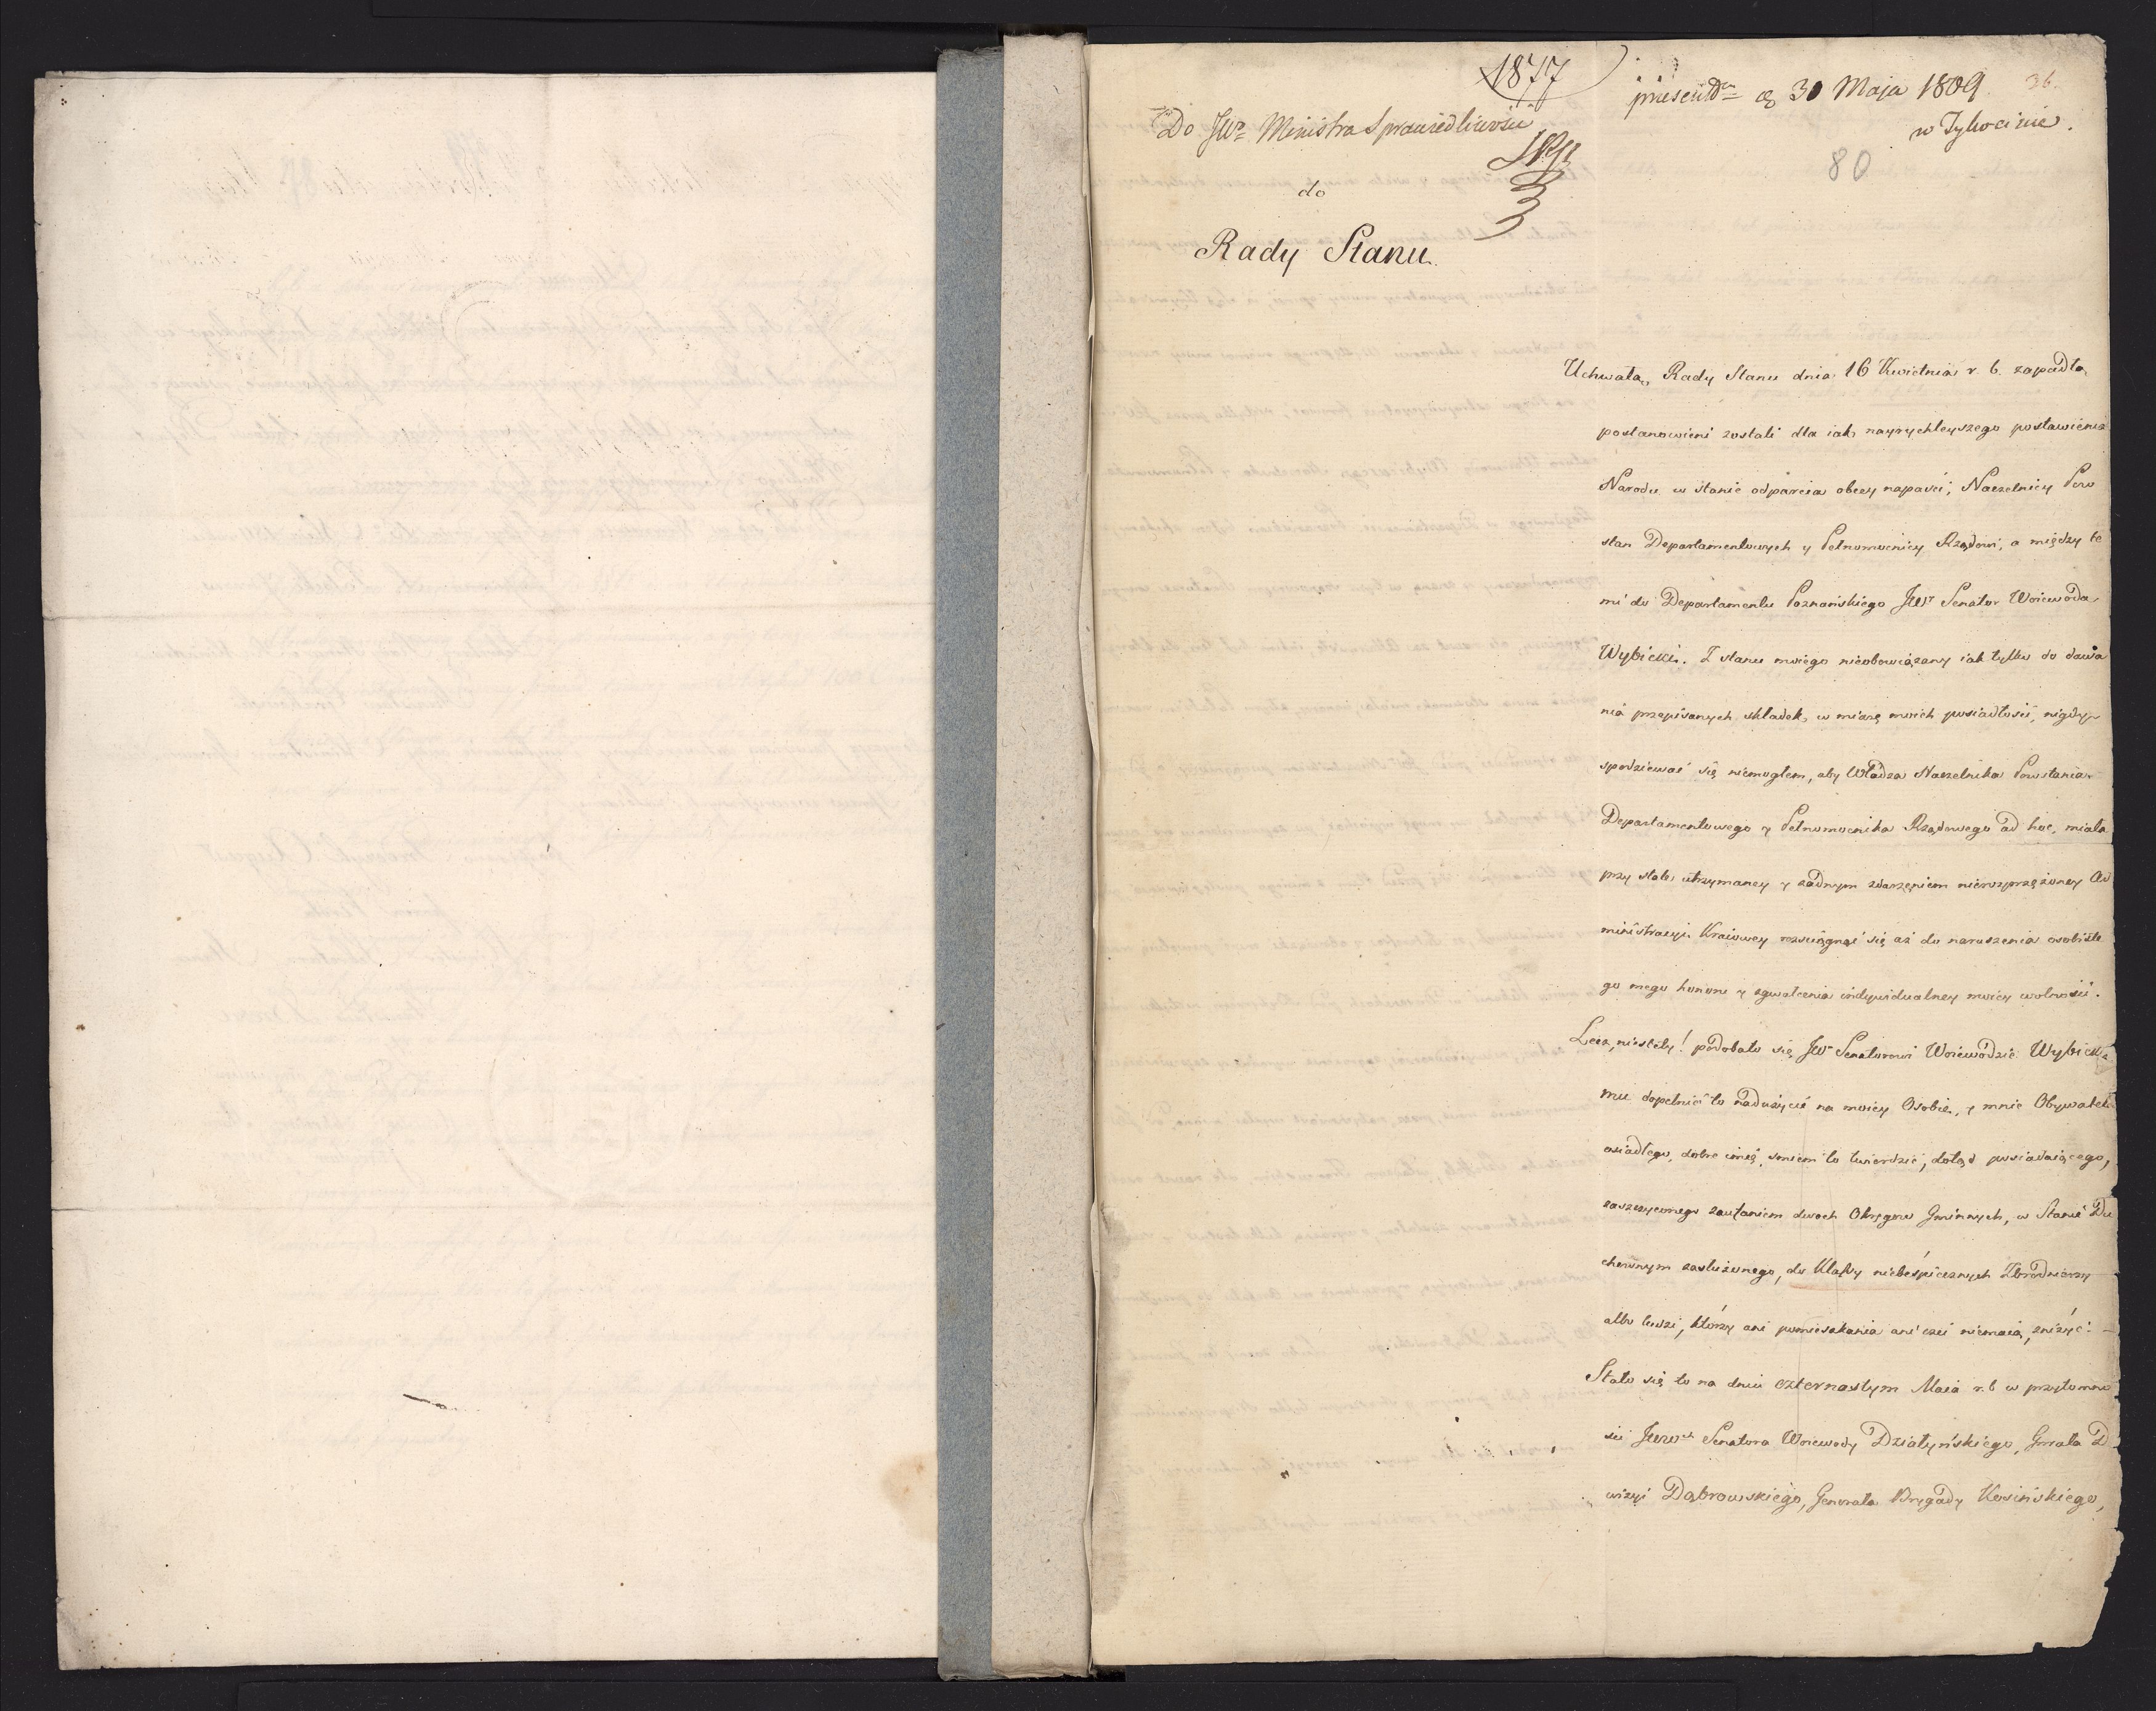 1877
presentdm d. 30 Maja 1809. 36.
w Tykocinie.
80
Do JWo Ministra Sprawiedliwości
do
Rady Stanu
Uchwałą Rady Stanu dnia 16 Kwietnia r. b. zapadłą
postanowieni zostali dla iak nayrychleyszego postawienia
Narodu w stanie odparcia obcey napaści, Naczelnicy Pow
stań Departamentowych y Pełnomocnicy Rządowi, a między te
mi do Departamentu Poznańskiego JWr Senator Woiewoda
Wybicki. Z stanu moiego nieobowiązany iak tylko do dawa
nia przepisanych składek, w miarę moich posiadłości, nigdym
spodziewać się niemogłem, aby Władza Naczelnika Powstania
Departamentowego y Pełnomocnika Rządowego ad hoc, miała
przy stale utrzymaney y żadnym zdarzeniem nierozprzężoney Ad
ministracyi Kraiowey rozciągnąć się aż do naruszenia osobiste
go mego honoru y zgwałcenia indywidualney moiey wolności.
Lecz, niestety! podobało się JWr Senatorowi Woiewodzie Wybickie
mu dopełnić to nadużycie na moiey Osobie, y mnie Obywatela
osiadłego, dobre imię, śmiem to twierdzić, dotąd posiadaiącego,
zaszczyconego zaufaniem dwoch Okręgow Gminnych, w Stanie Du
chownym zasłużonego, do Klassy niebespiecznych Zbrodniarzy
albo ludzi, którzy ani pomieszkania ani czci niemaią, zniżyć. —
Stało się to na dniu czternastym Maia r. b w przytomno
ści JWWch Senatora Woiewody Działyńskiego, Gnrała Dy
wizyi Dąbrowskiego, Generała Brygady Kosińskiego,